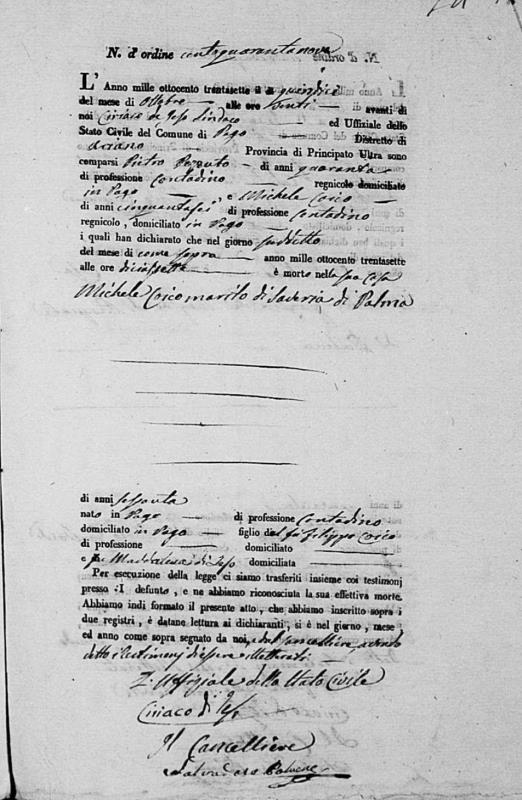 N. d' ordine centoquarantanove
L' Anno mille ottocento trentasette il dì quindici
del mese di Ottobre alle ore venti avanti di
noi Ciriaco di Jeso Sindaco ed Uffiziale dello
Stato Civile del Comune di Pago Distretto di
Ariano Provincia di Principato Ultra sono
comparsi Pietro di anni quaranta
di professione Contadino regnicolo domiciliato
in Pago e Michele Coico
di anni cinquantasei di professione Contadino
regnicolo, domiciliato in Pago
i quali han dichiarato che nel giorno suddetto
del mese di come sopra anno mille ottocento trentasette
alle ore diciassette è morto nella sua Casa
Michele Coico marito di Saveria di Palma
di anni sessanta
nato in Pago di professione Contadino
domiciliato in Pago figlio del fu Filippo Coico
di professione domiciliato
e fu Maddalena di Jeso domiciliata
Per esecuzione della legge ci siamo trasferiti insieme coi testimonj
presso I defunto, e ne abbiamo riconosciuta la sua effettiva morte.
Abbiamo indi formato il presente atto, che abbiamo inscritto sopra i
due registri, è datane lettura ai dichiaranti, si è nel giorno, mese
ed anno come sopra segnato da noi, e dal Cancelliere avendo
detto i testimonj d'essere illetterati
L'Uffiziale dello Stato Civile
Ciriaco di Jeso
Il Cancelliere